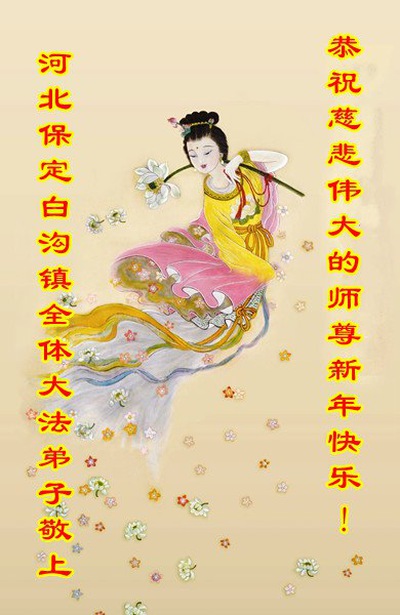 恭祝慈悲伟大的师尊新年快乐！
河北保定白沟镇全体大法弟子敬上